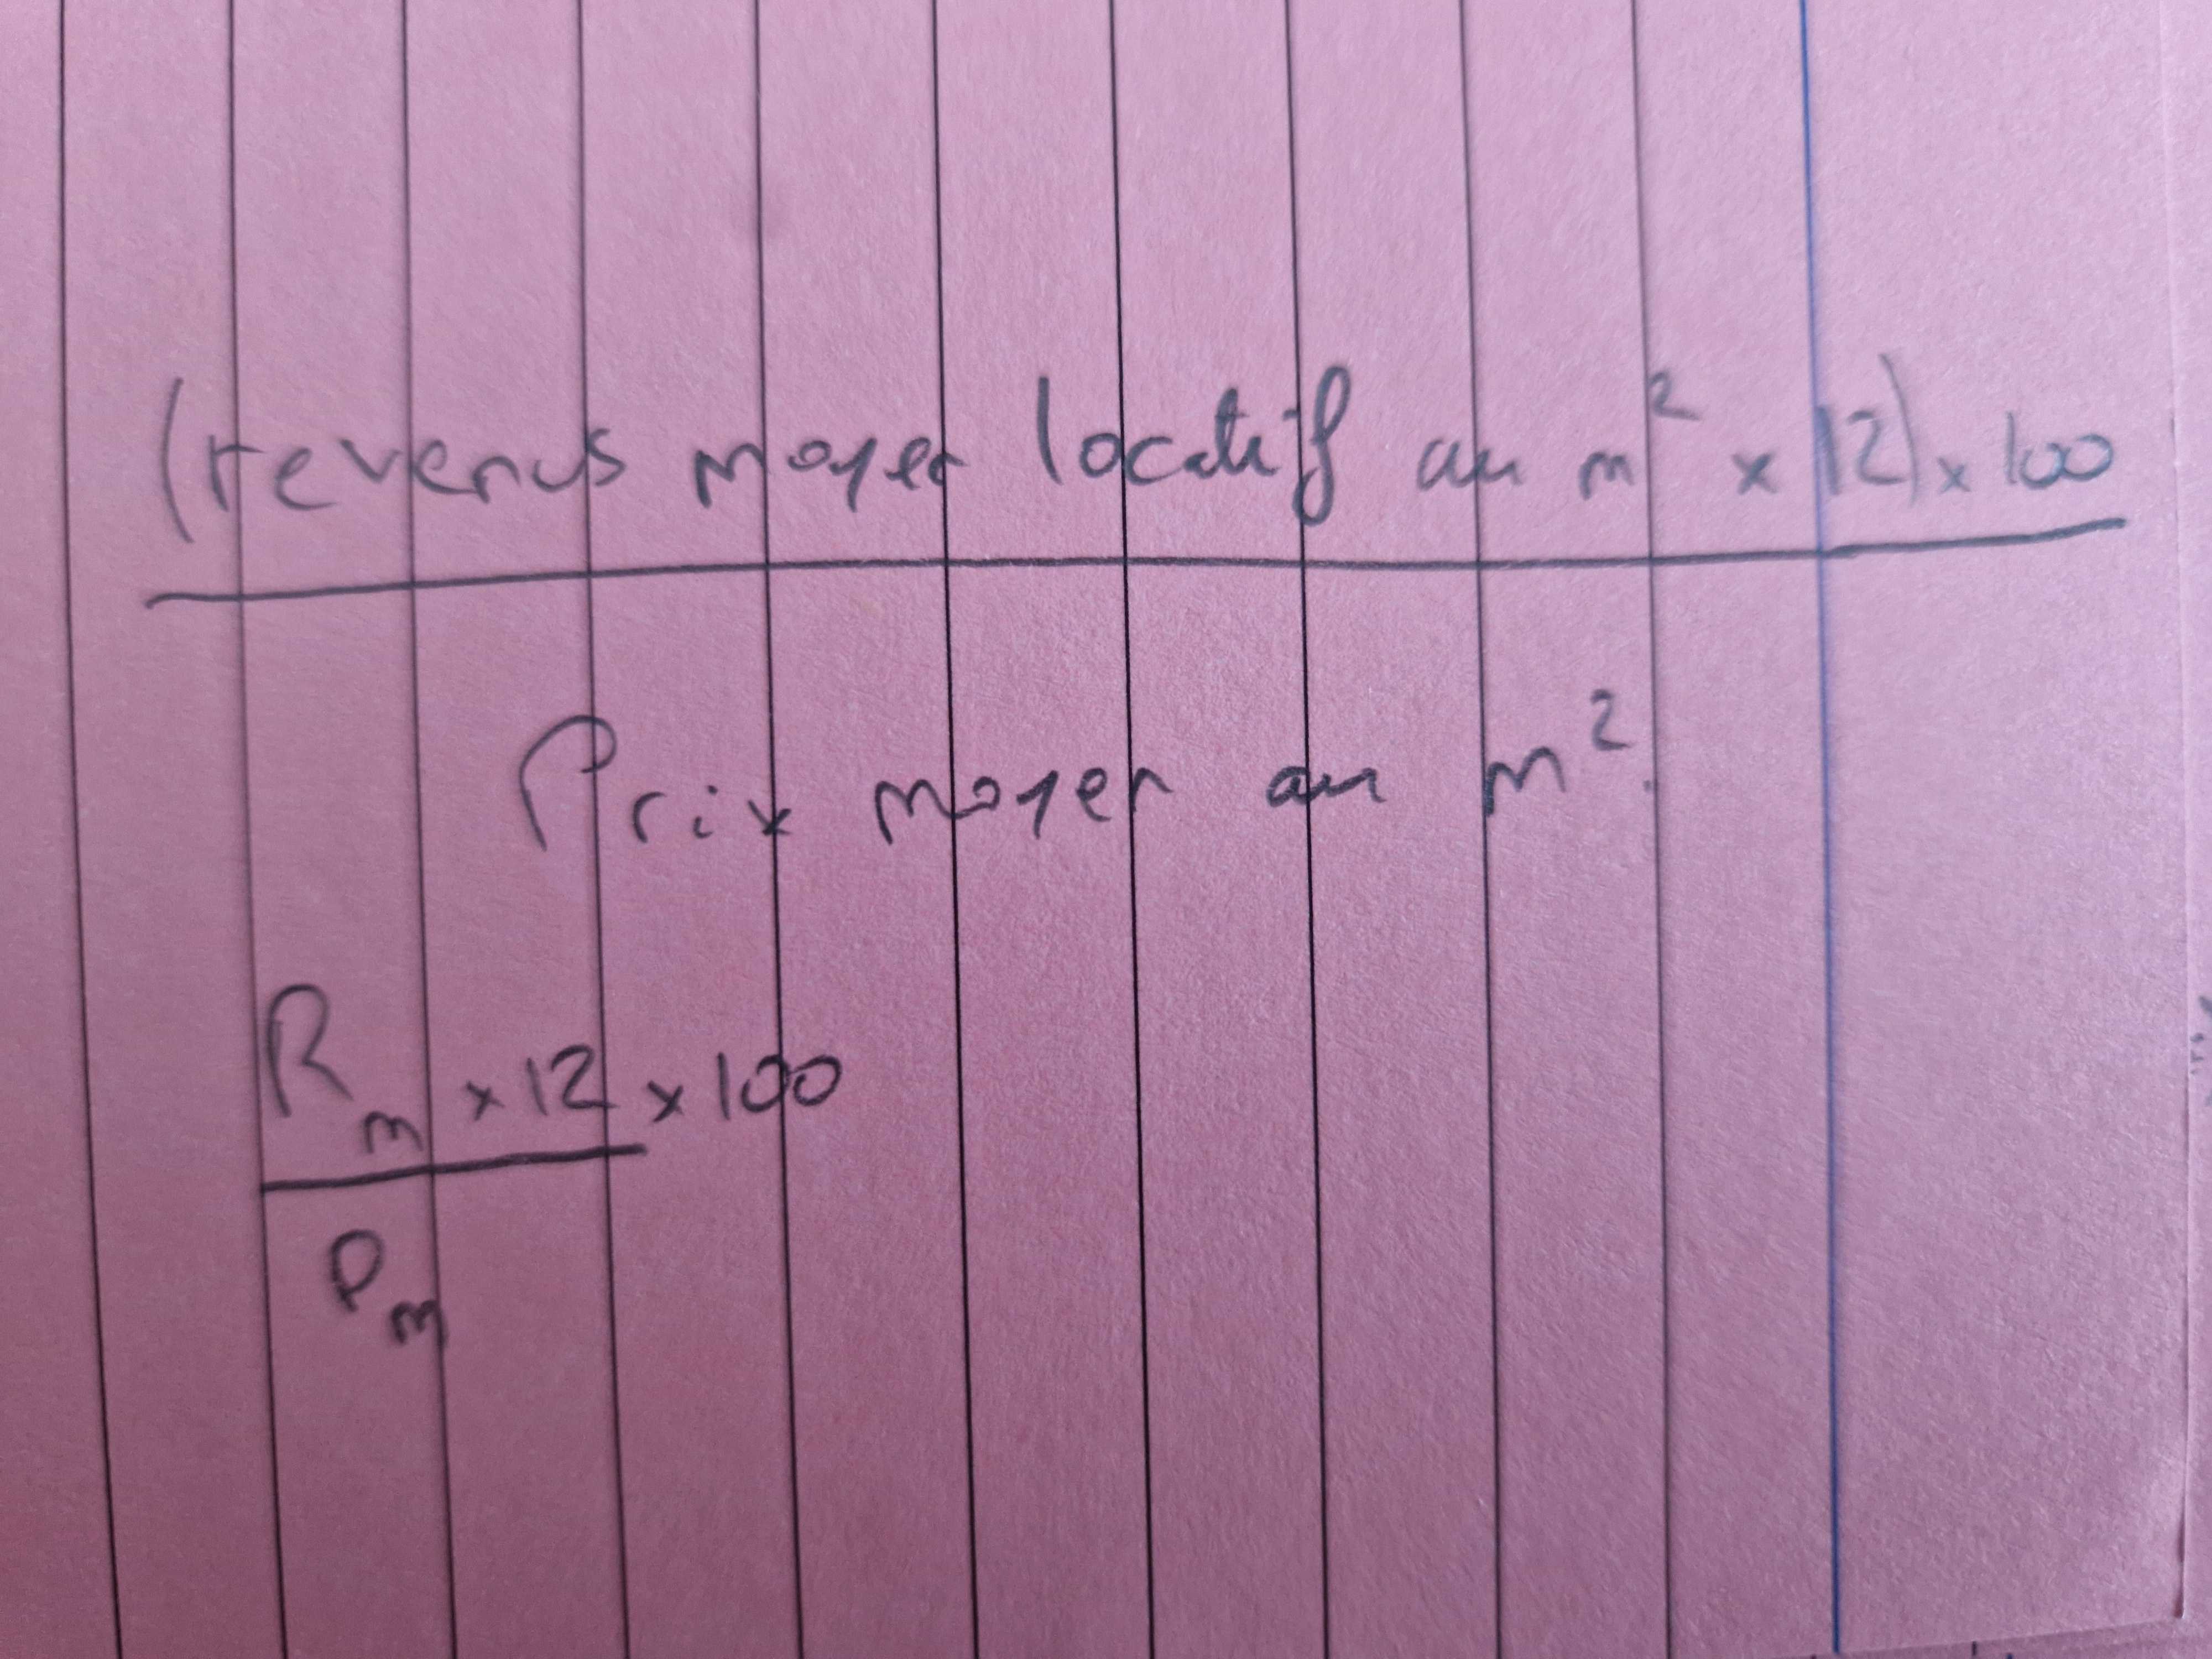 (revenus moyen locatif au m² x 12) x 100
Prix moyen au m².
Rm x 12 x 100
Pm